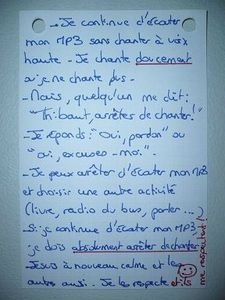 → Je continue d'écouter
mon MP3 sans chanter à voix
haute - Je chante doucement
ou je ne chante plus -
- Mais, quelqu'un me dit:
"Thibaut, arrêtes de chanter!"
- Je réponds: "Oui, pardon" ou
"oui, excuses-moi".
- Je peux arrêter d'écouter mon MP3
et choisir une autre activité
(livre, radio du bus, parler...)
- Si je continue d'écouter mon MP3,
je dois absolument arrêter de chanter.
- Je suis à nouveau calme et les
autres aussi. Je les respecte et ils
me respectent!